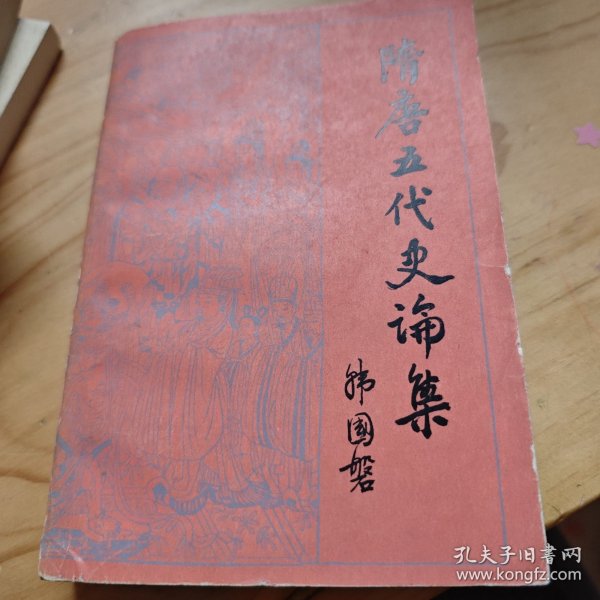 隋唐五代史论集
韩国磐
孔夫子旧书网
www.kongfz.com